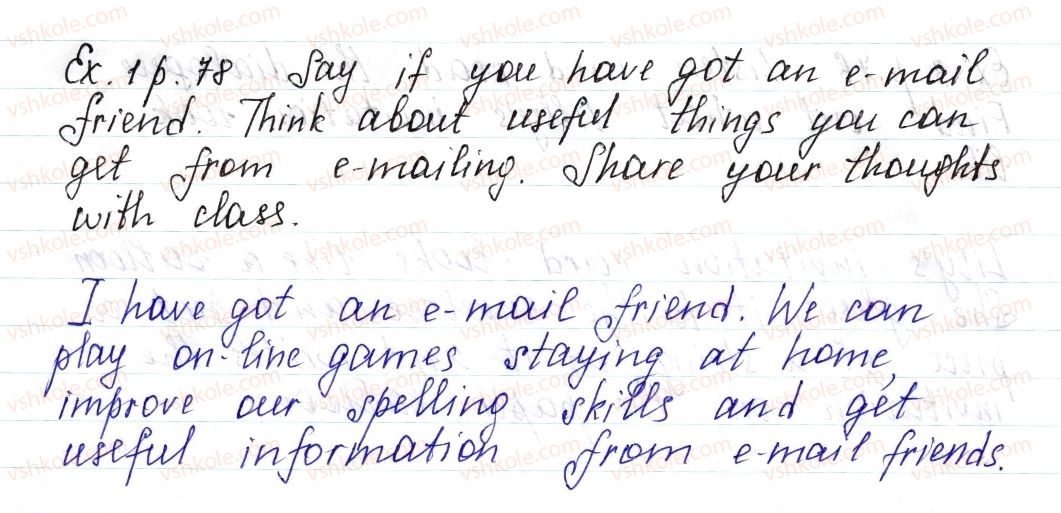 Ex. 1 p. 78 Say if you have got an e-mail
friend. Think about useful things you can
get from e-mailing. Share your thoughts
with class.
I have got an e-mail friend. We can
play on-line games staying at home,
improve our spelling skills and get
useful information from e-mail friends.